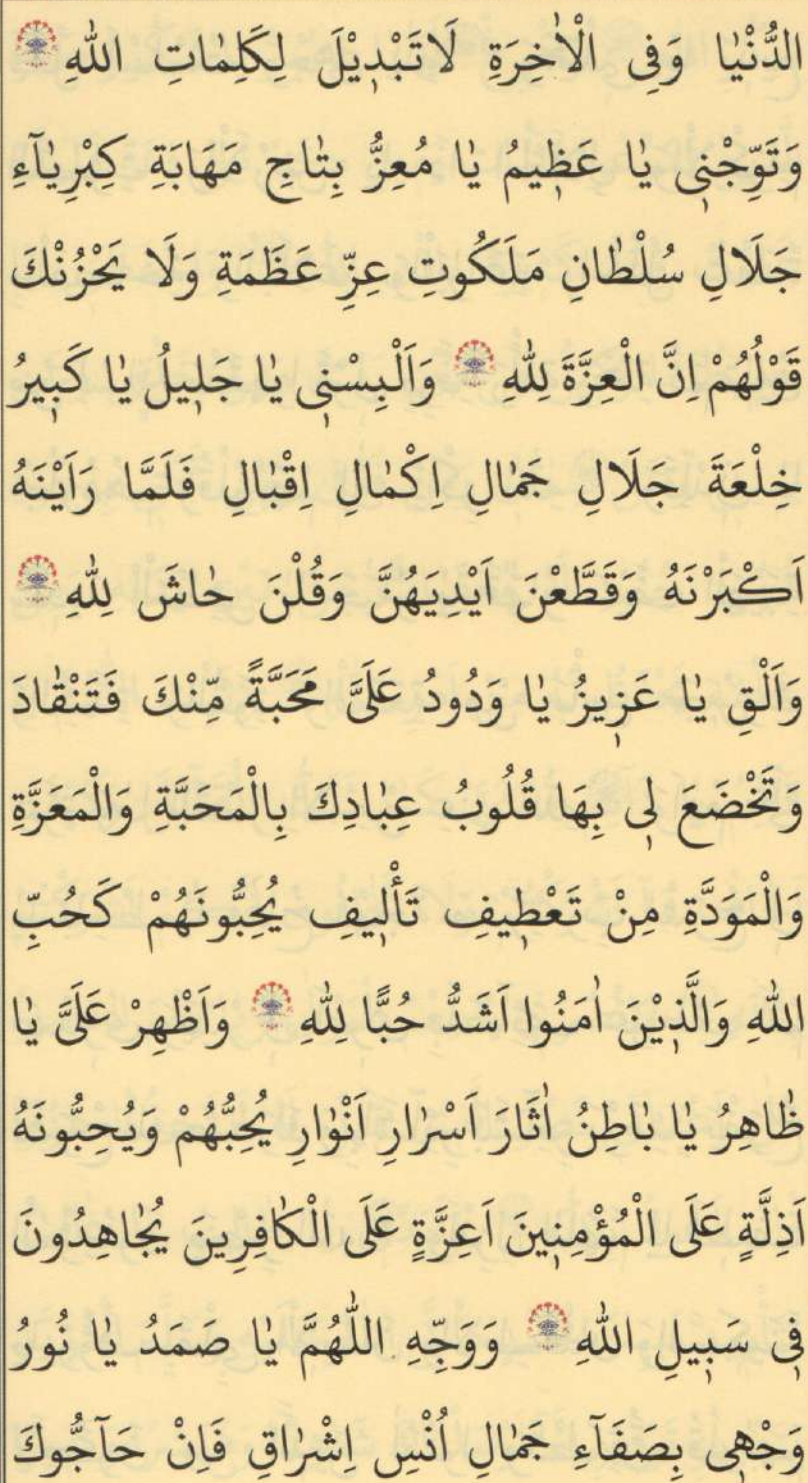 الدُّنْيٰا وَفِى الْاٰخِرَةِ لَاتَبْدٖيْلَ لِكَلِمٰاتِ اللّٰهِ
وَتَوِّجْنٖى يٰا عَظٖيمُ يٰا مُعِزُّ بِتٰاجِ مَهَابَةِ كِبْرِيٰآءِ
جَلَالِ سُلْطٰانِ مَلَكُوتِ عِزِّ عَظَمَةِ وَلَا يَحْزُنْكَ
قَوْلُهُمْ اِنَّ الْعِزَّةَ لِلّٰهِ وَاَلْبِسْنٖى يٰا جَلٖيلُ يٰا كَبٖيرُ
خِلْعَةَ جَلَالِ جَمٰالِ اِكْمٰالِ اِقْبٰالِ فَلَمَّا رَاَيْنَهُ
اَكْبَرْنَهُ وَقَطَّعْنَ اَيْدِيَهُنَّ وَقُلْنَ حٰاشَ لِلّٰهِ
وَاَلْقِ يٰا عَزٖيزُ يٰا وَدُودُ عَلَىَّ مَحَبَّةً مِّنْكَ فَتَنْقٰادَ
وَتَخْضَعَ لٖى بِهَا قُلُوبُ عِبٰادِكَ بِالْمَحَبَّةِ وَالْمَعَزَّةِ
وَالْمَوَدَّةِ مِنْ تَعْطٖيفِ تَأْلٖيفِ يُحِبُّونَهُمْ كَحُبِّ
اللّٰهِ وَالَّذٖيْنَ اٰمَنُوا اَشَدُّ حُبًّا لِلّٰهِ وَاَظْهِرْ عَلَىَّ يٰا
ظٰاهِرُ يٰا بٰاطِنُ اٰثَارَ اَسْرٰارِ اَنْوٰارِ يُحِبُّهُمْ وَيُحِبُّونَهُ
اَذِلَّةٍ عَلَى الْمُؤْمِنٖينَ اَعِزَّةٍ عَلَى الْكٰافِرٖينَ يُجٰاهِدُونَ
فٖى سَبٖيلِ اللّٰهِ وَوَجِّهِ اللّٰهُمَّ يٰا صَمَدُ يٰا نُورُ
وَجْهٖى بِصَفَآءِ جَمٰالِ اُنْسِ اِشْرٰاقِ فَاِنْ حَآجُّوكَ